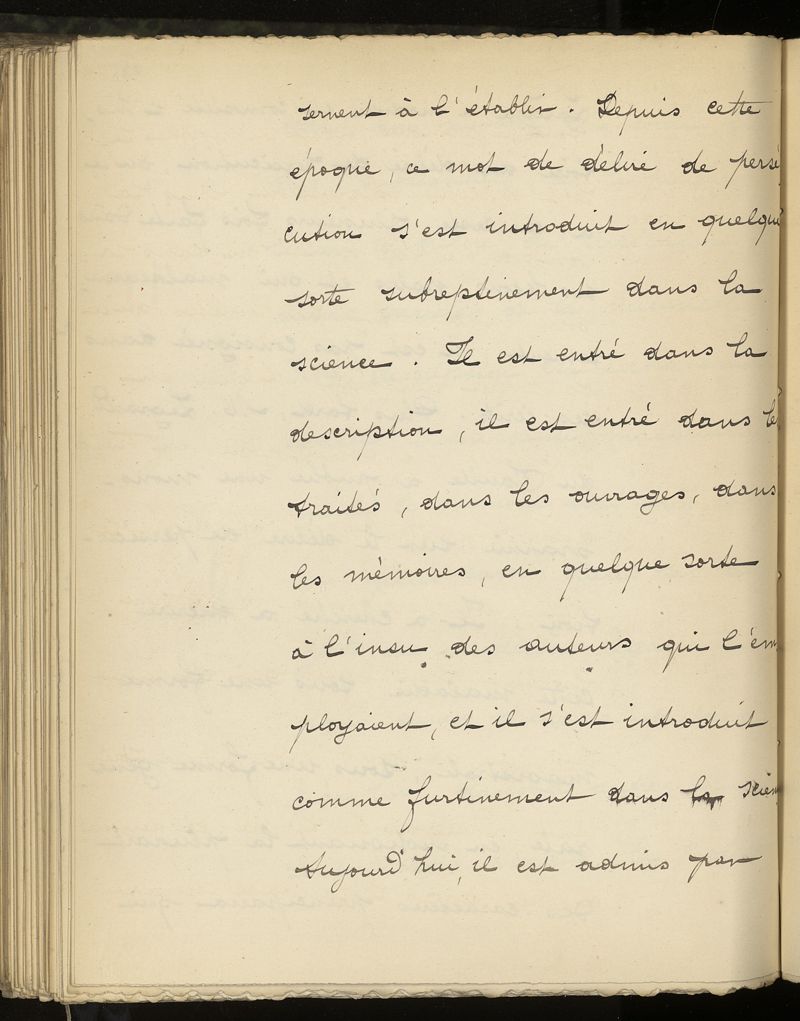 sernent à l'établir. Depuis cette
époque, ce mot de délire de persé
cution s'est introduit en quelque
sorte subreptinement dans la
science. Il est entré dans la
description, il est entré dans le
traités, dans les ouvrages, dans
les mémoires, en quelque sorte
à l'insu des auteurs qui l'em
ployaient, et il s'est introduit
comme furtinement dans la scien
Aujourd'hui, il est admis par